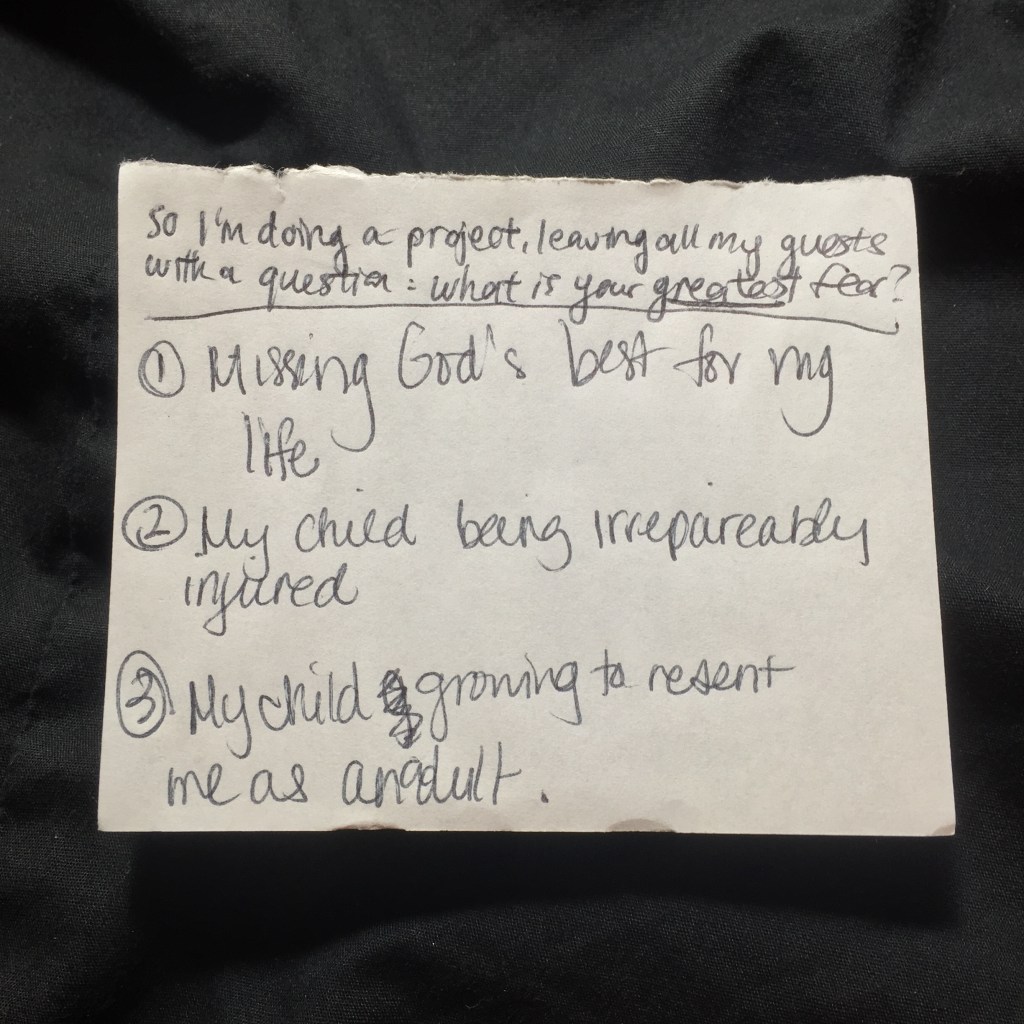 So I'm doing a project, leaving all my guests
with a question: what is your greatest fear?
① Missing God's best for my
life
② My child being irrepareably
injured
③ My child growing to resent
me as an adult.